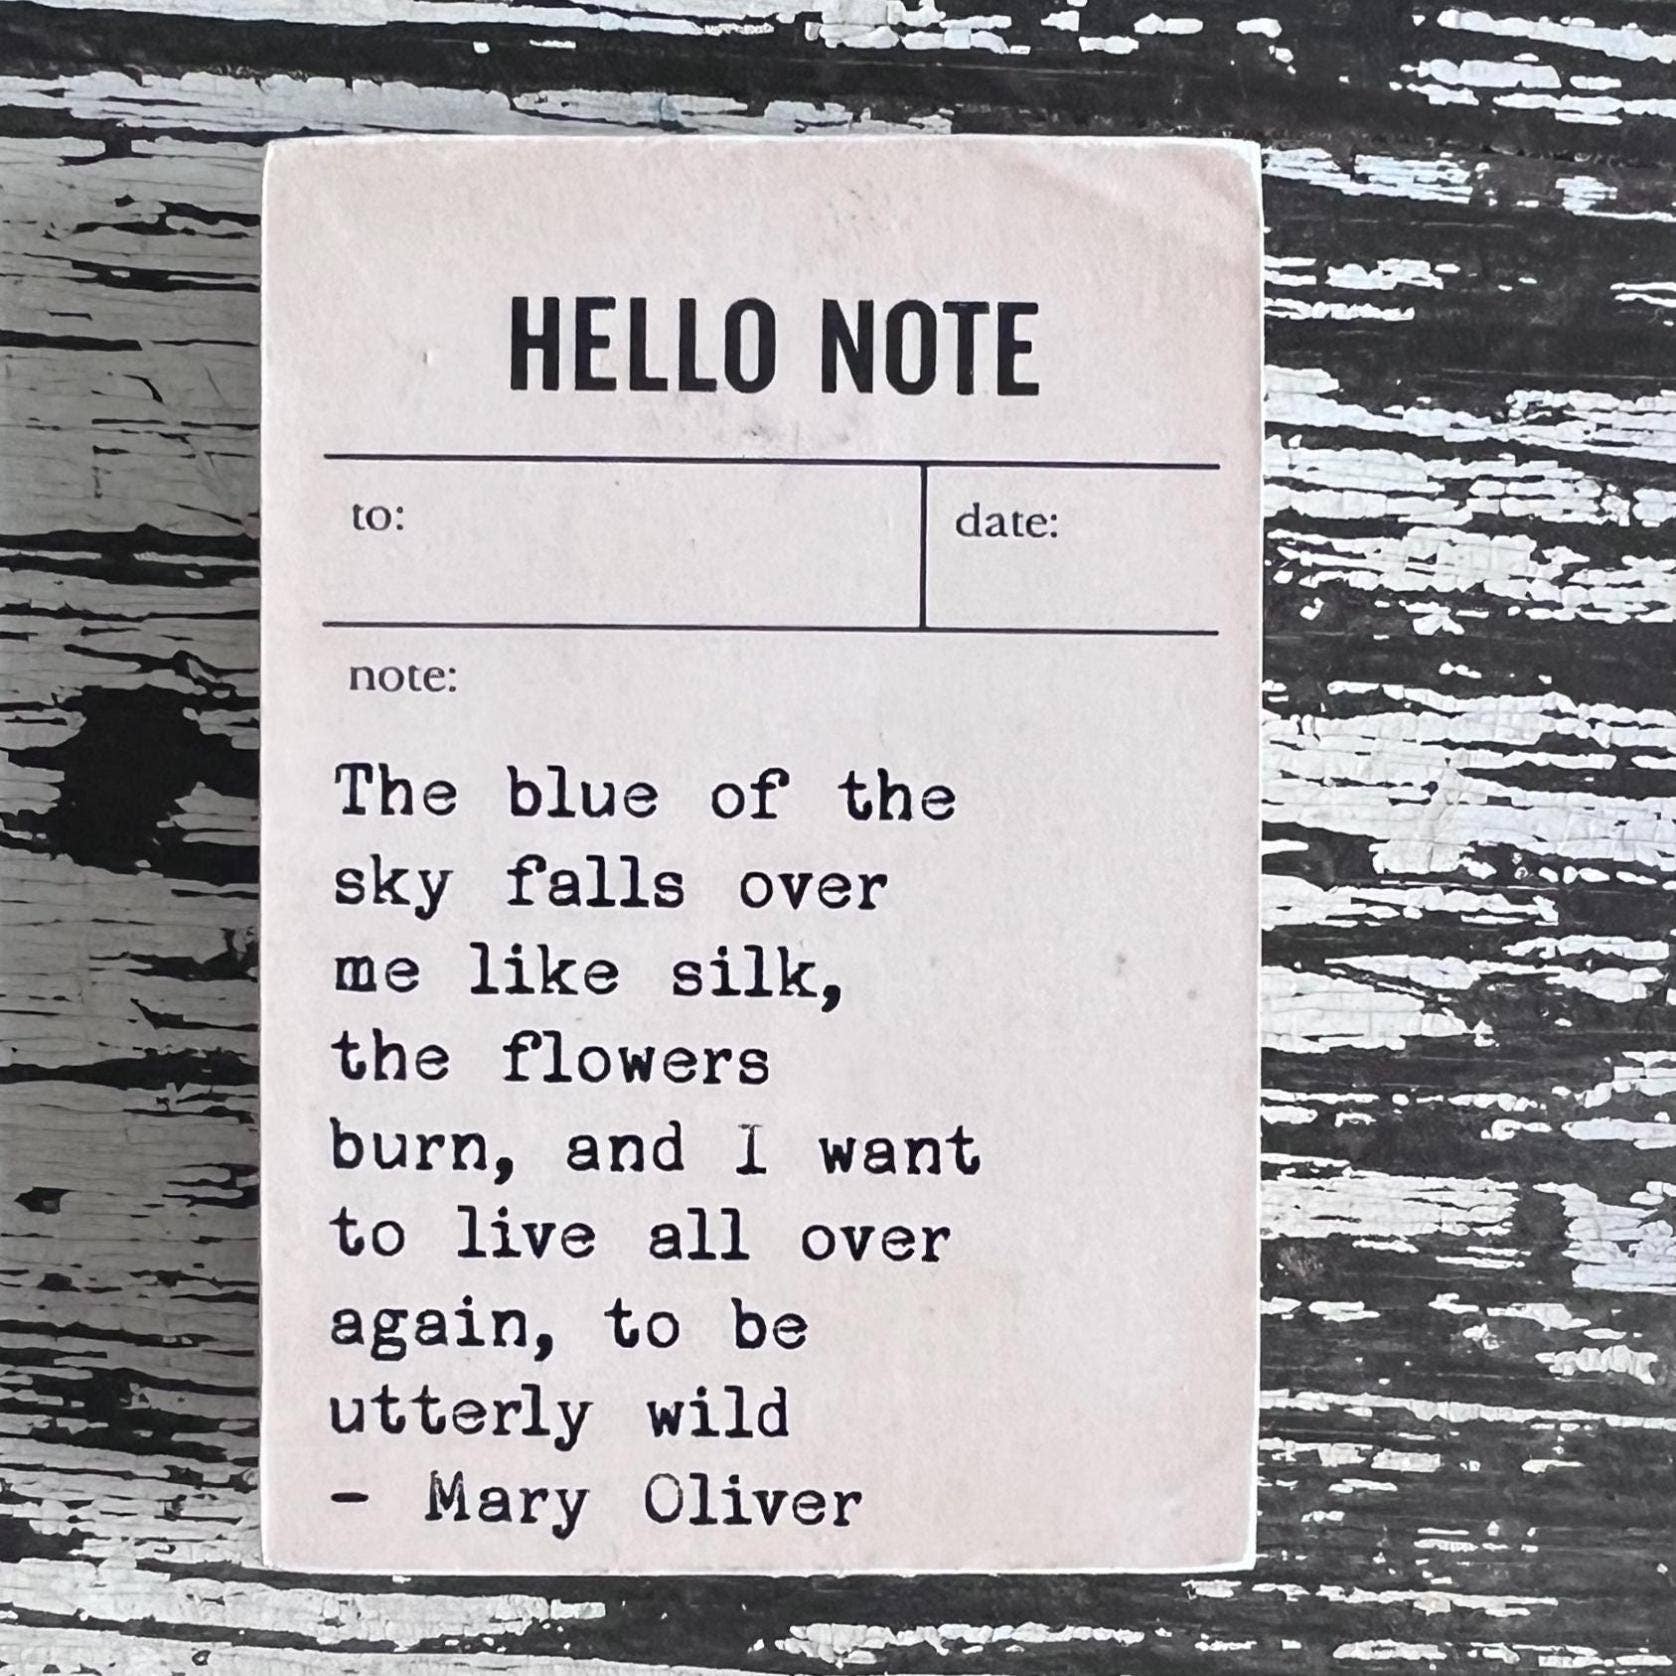 HELLO NOTE
to: date:
note:
The blue of the
sky falls over
me like silk,
the flowers
burn, and I want
to live all over
again, to be
utterly wild
- Mary Oliver